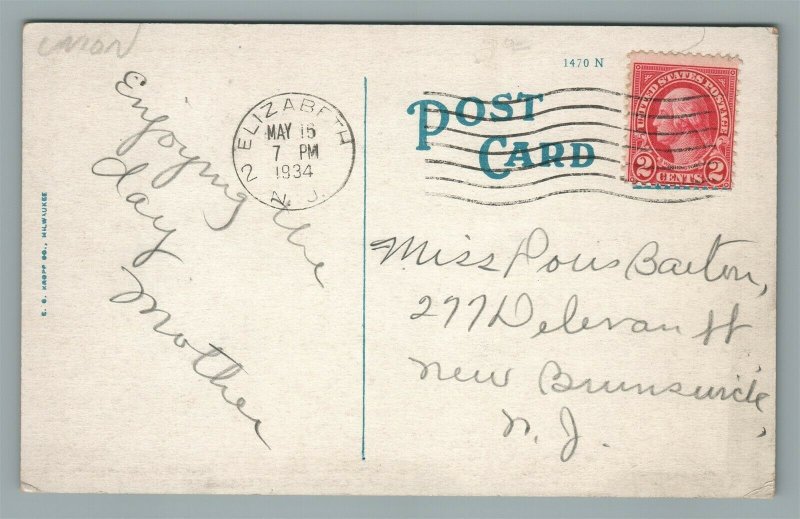 UNION
1470 N
POST
CARD
ELIZABETH
MAY 16
7 PM
1934
2 N. J.
UNITED STATES POSTAGE
2 CENTS 2
Enjoying the
day
Mother
E. C. KROPP CO., MILWAUKEE
Miss Barton,
277 Delevan St
New Brunswick,
N. J.